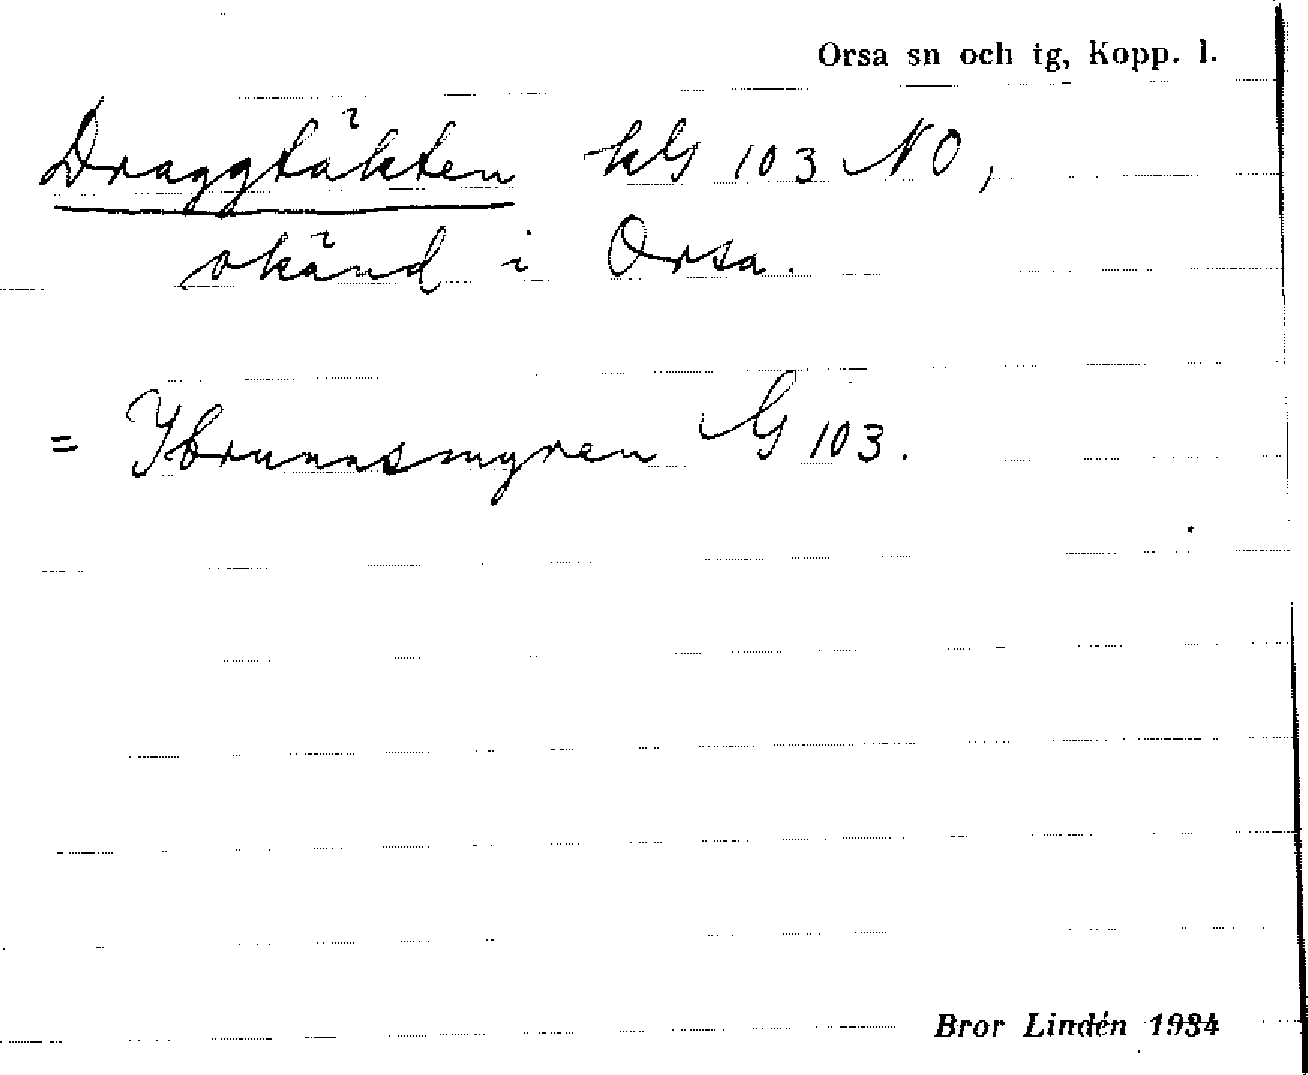 Orsa sn och tg, Kopp. l.
Draggtäkten kG 103 NO,
okänd i Orsa.
= Ybrunnsmyren G 103.
Bror Lindén 1934